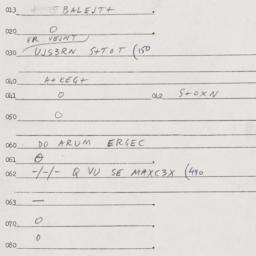 013 BALEJT+
020 O
030 UJS3RN S+TOT (150
040 A+KEG+
041 O 042 S+OXN
050 O
060 DO ARUM ERGEC
061 O
062 -/-/- Q VU SE MAXC3X (490
063 —
070 O
080 O